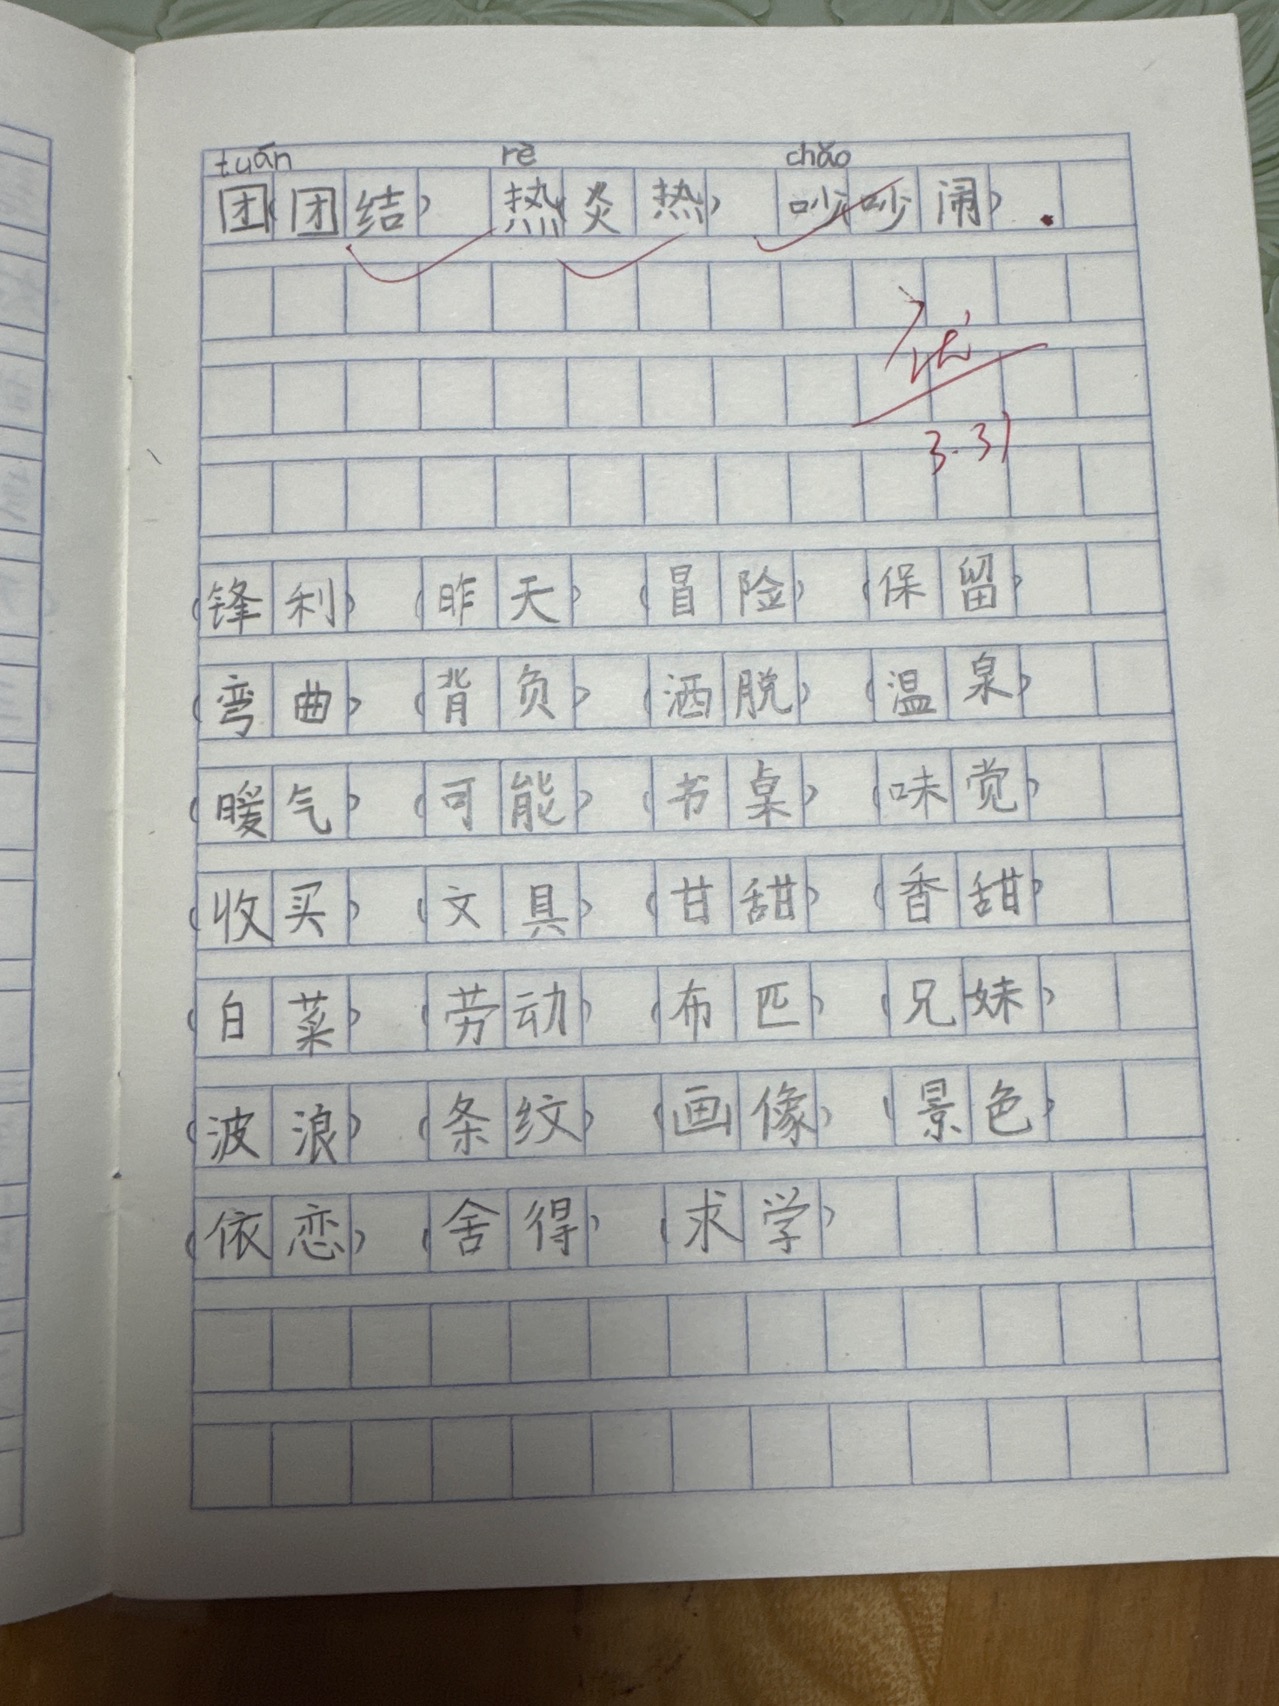 tuán rè chǎo
团(团结) 热(炎热) 吵(吵闹)
优
3.31
(锋利) (昨天) (冒险) (保留)
(弯曲) (背负) (洒脱) (温泉)
(暖气) (可能) (书桌) (味觉)
(收买) (文具) (甘甜) (香甜)
(白菜) (劳动) (布匹) (兄妹)
(波浪) (条纹) (画像) (景色)
(依恋) (舍得) (求学)